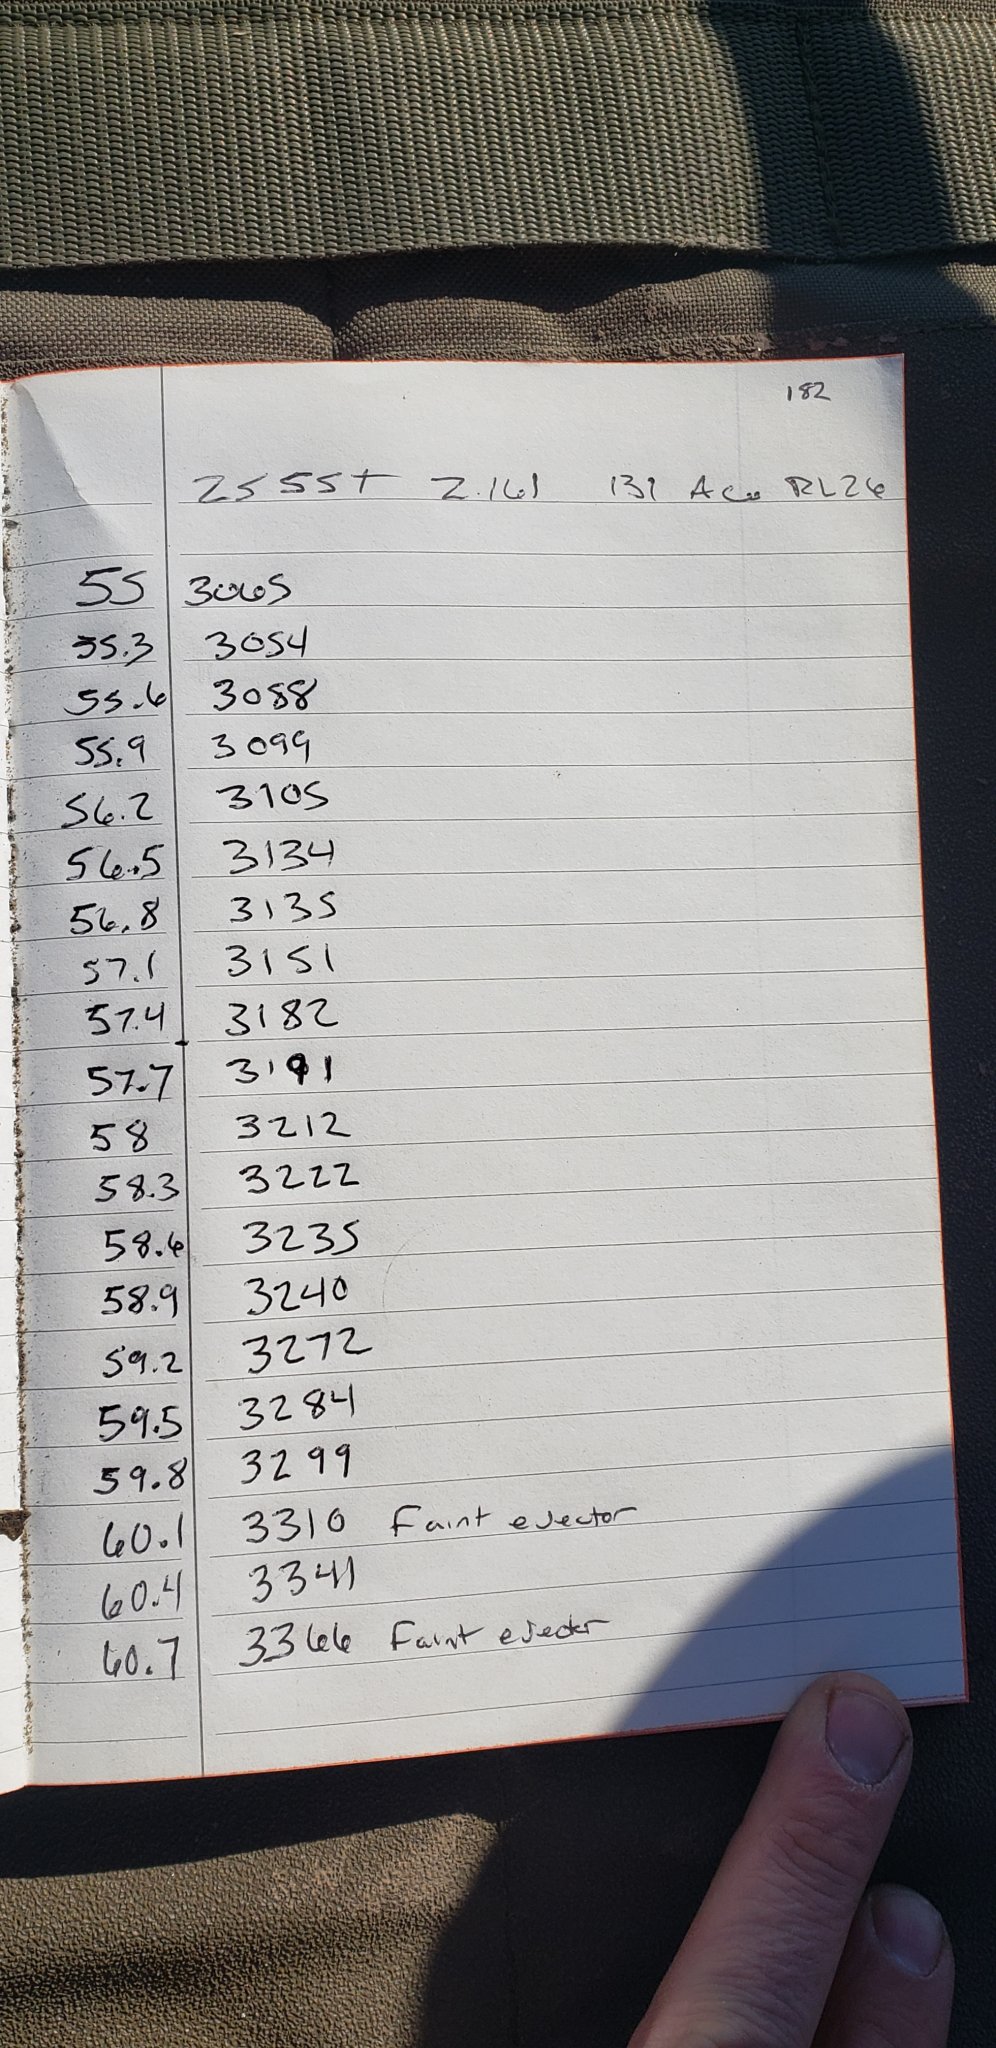 182
25 SST 2.161 131 Ace RL26
55 3065
55.3 3054
55.6 3088
55.9 3099
56.2 3105
56.5 3134
56.8 3135
57.1 3151
57.4 3182
57.7 3191
58 3212
58.3 3222
58.6 3235
58.9 3240
59.2 3272
59.5 3284
59.8 3299
60.1 3310 Faint ejector
60.4 3341
60.7 3366 Faint ejector